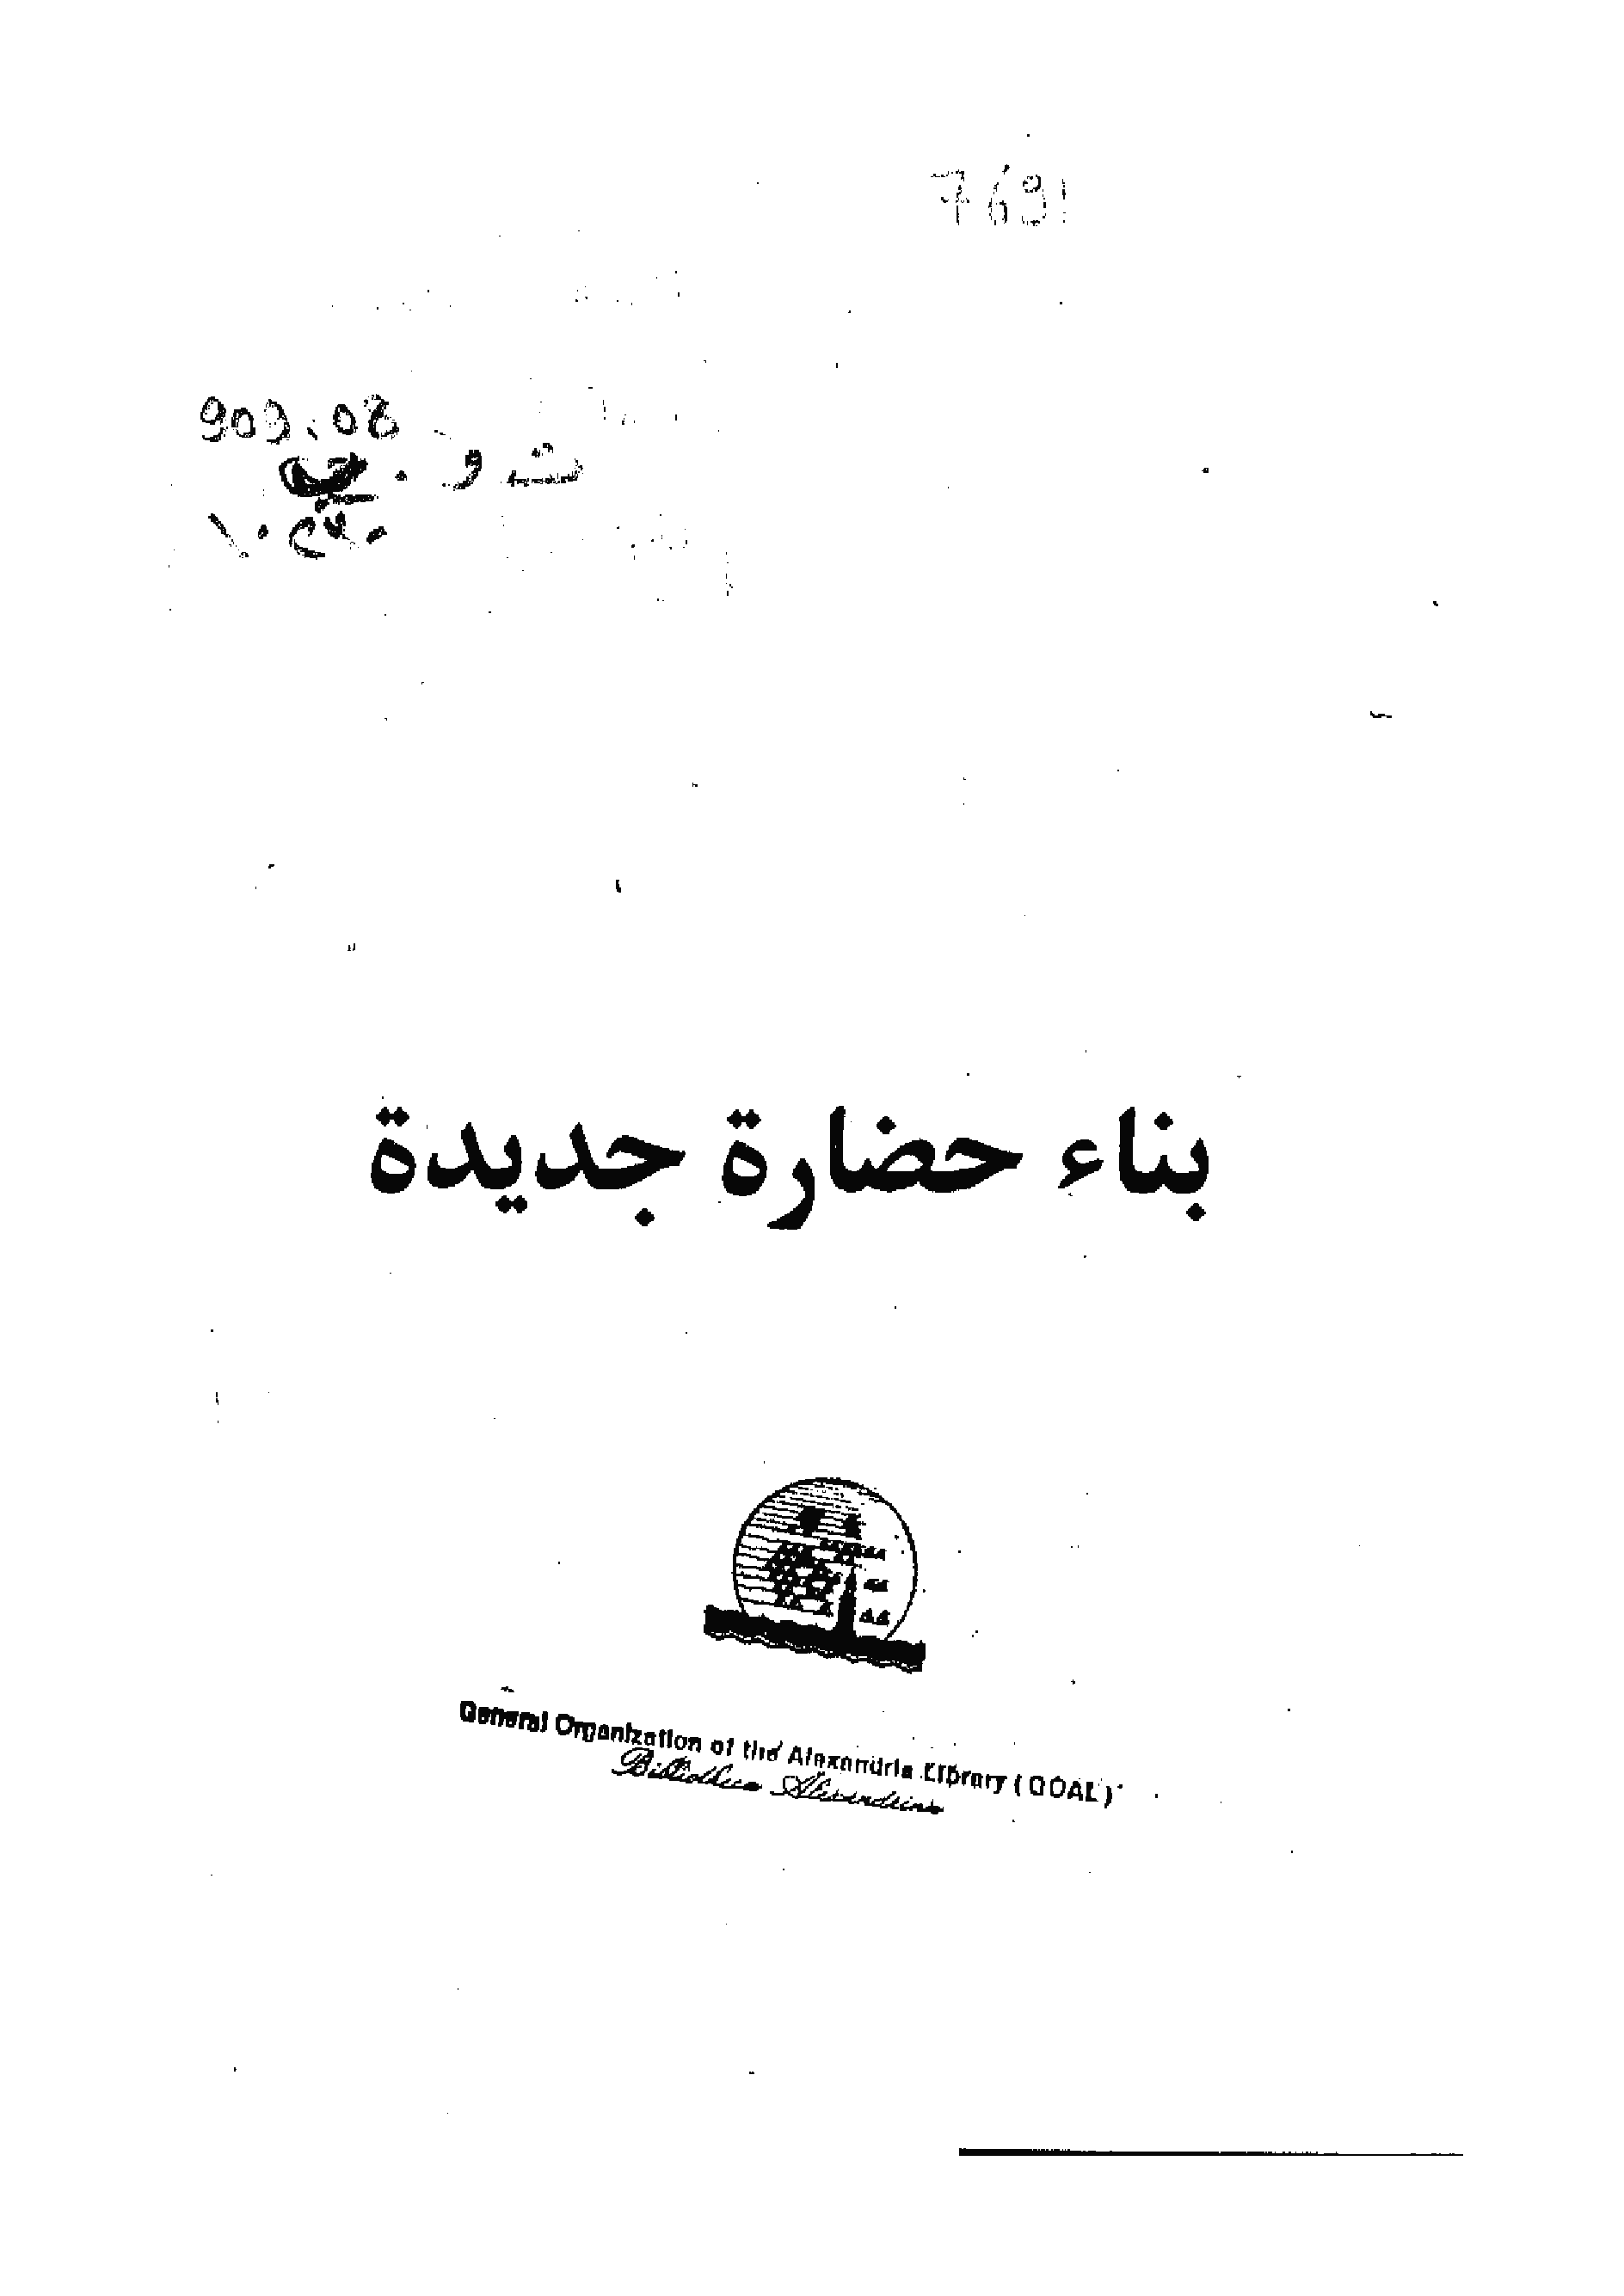 7691
909.08
بناء حضارة جديدة
General Organization of the Alexandria Library ( GOAL )
Bibliotheca Alexandrina